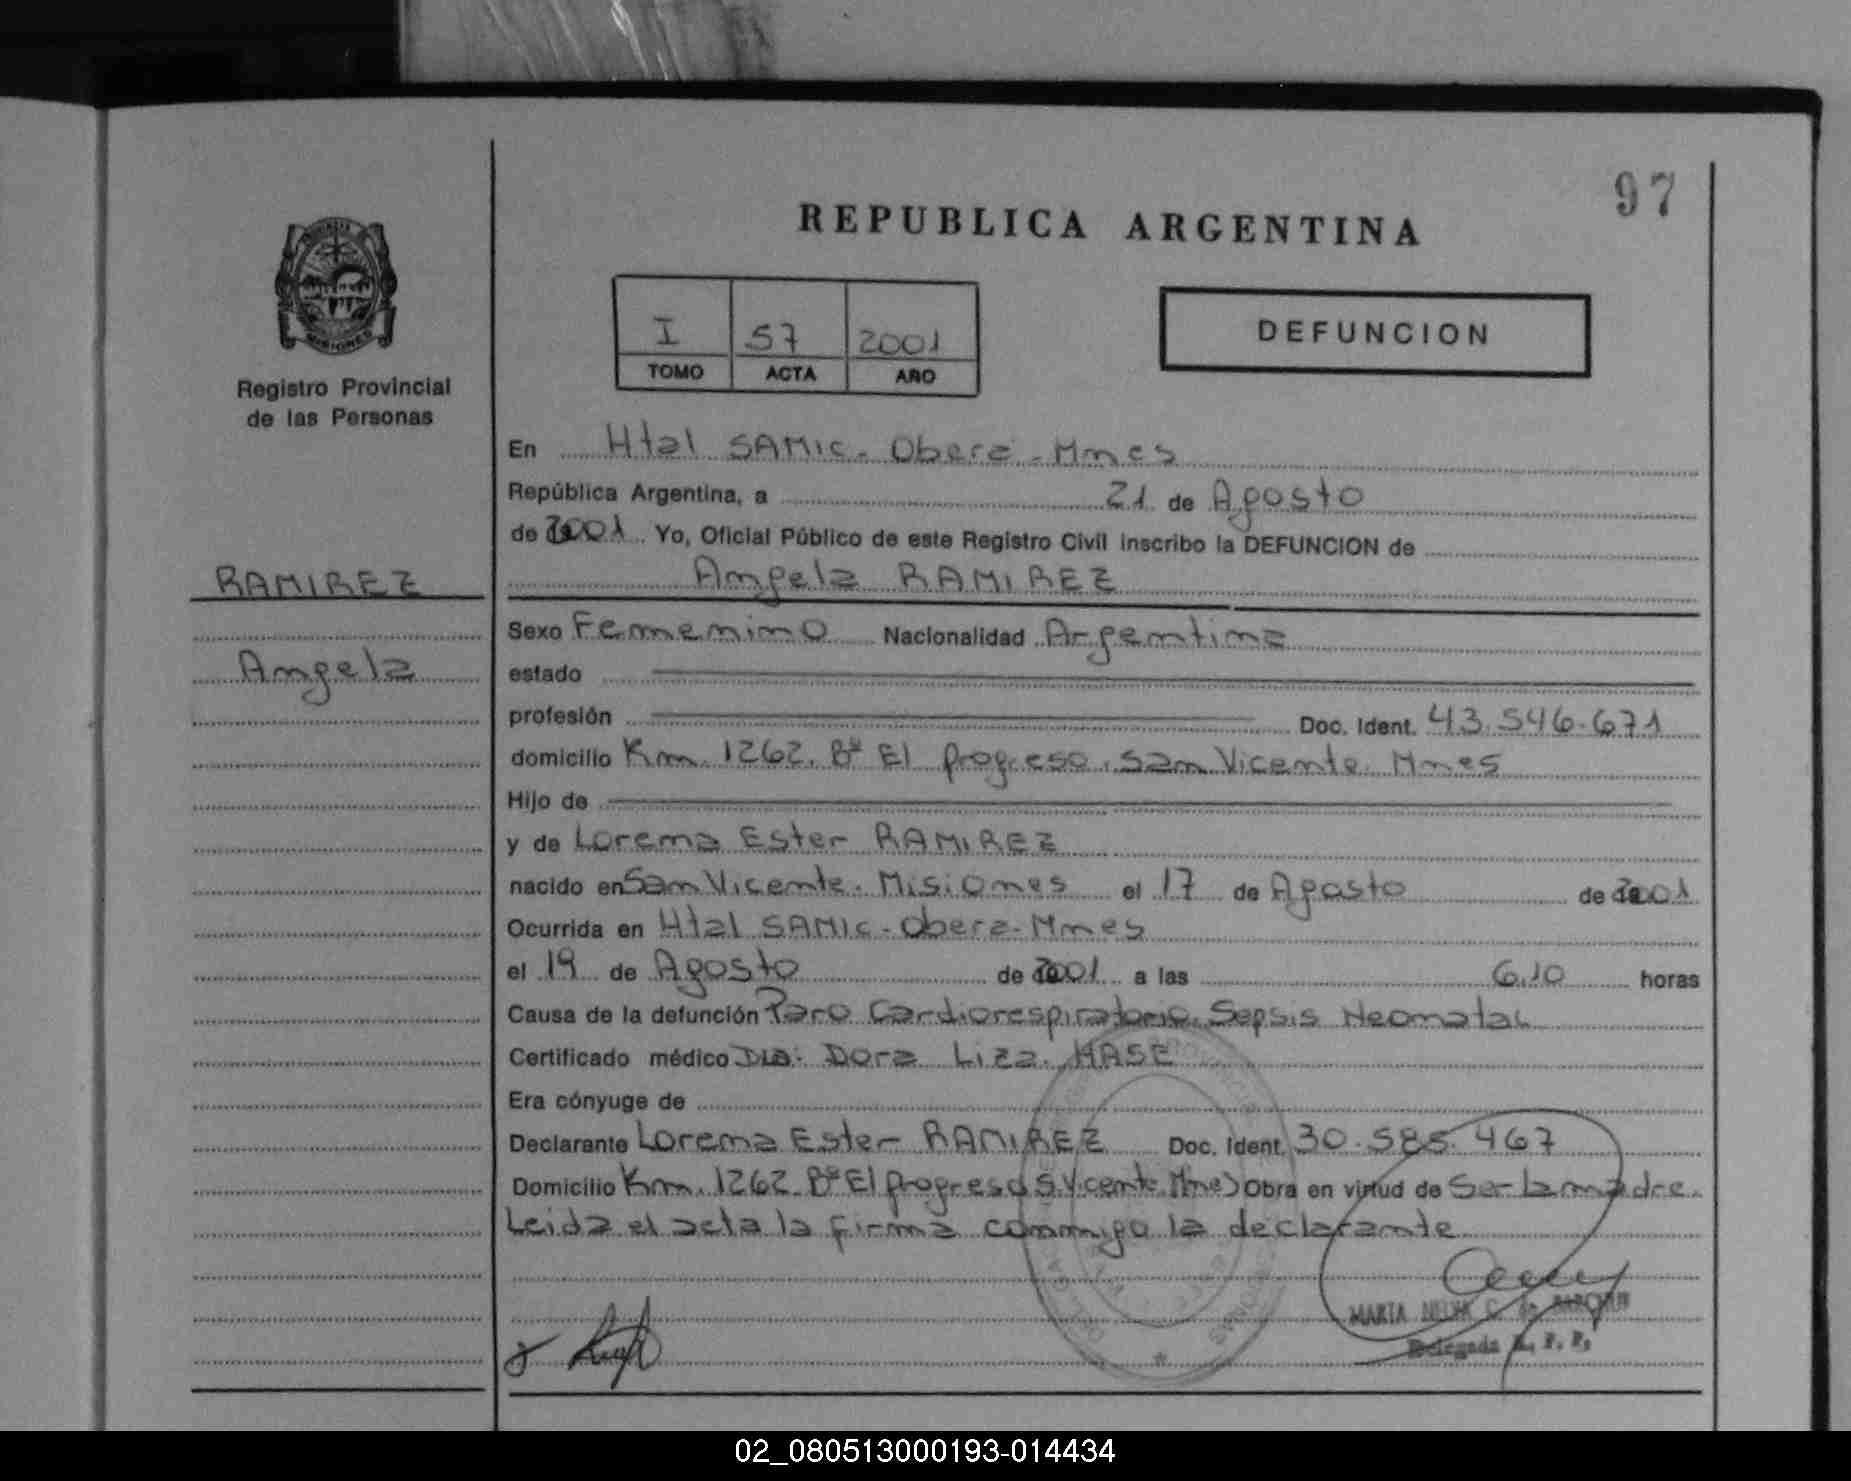 97
REPUBLICA ARGENTINA
I 57 2001
TOMO ACTA AÑO
DEFUNCION
MISIONES
Registro Provincial
de las Personas
RAMIREZ
Angela
En Htal SAMIC - Oberá - Mnes
República Argentina, a 21 de Agosto
de 2001 Yo, Oficial Público de este Registro Civil inscribo la DEFUNCION de
Angela RAMIREZ
Sexo Femenino Nacionalidad Argentina
estado
profesión Doc. Ident. 43.546.671
domicilio Km. 1262. Bº El progreso. San Vicente. Mnes
Hijo de
y de Lorena Ester RAMIREZ
nacido en San Vicente. Misiones el 17 de Agosto de 2001
Ocurrida en Htal SAMIC - Obera - Mnes
el 19 de Agosto de 2001 a las 6.10 horas
Causa de la defunción Paro Cardiorespiratorio. Sepsis Neonatal
Certificado médico Dra: Dora Liza. HASE
Era cónyuge de
Declarante Lorena Ester RAMIREZ Doc. Ident. 30.585.467
Domicilio Km. 1262. Bº El progreso S. Vicente. Mnes Obra en virtud de Ser la madre.
Leida el acta la firma conmigo la declarante
MARIA C. de
Delegada R. P. P.
02_080513000193-014434